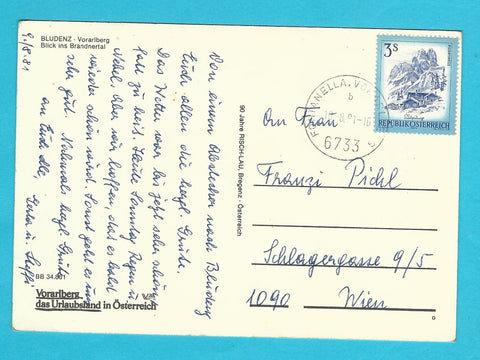 BLUDENZ · Vorarlberg
Blick ins Brandnertal
9./8.81
Von einem Abstecher nach Bludenz
Euch allen die herzl. Grüße.
Das Wetter war bis jetzt sehr schön
fast zu heiß. Heute Sonntag Regen u.
Nebel. Aber wir hoffen, daß es bald
wieder schön wird. Sonst geht es uns
sehr gut. Nochmals herzl. Grüße
an Euch alle,
u. Steffi
BB 34.801
Vorarlberg
das Urlaubsland in Österreich
90 Jahre RISCH-LAU, Bregenz · Österreich
FONTANELLA, VO
b
6733
3S
REPUBLIK ÖSTERREICH
An Frau
Franzi Pichl
Schlagergasse 9/5
1090 Wien